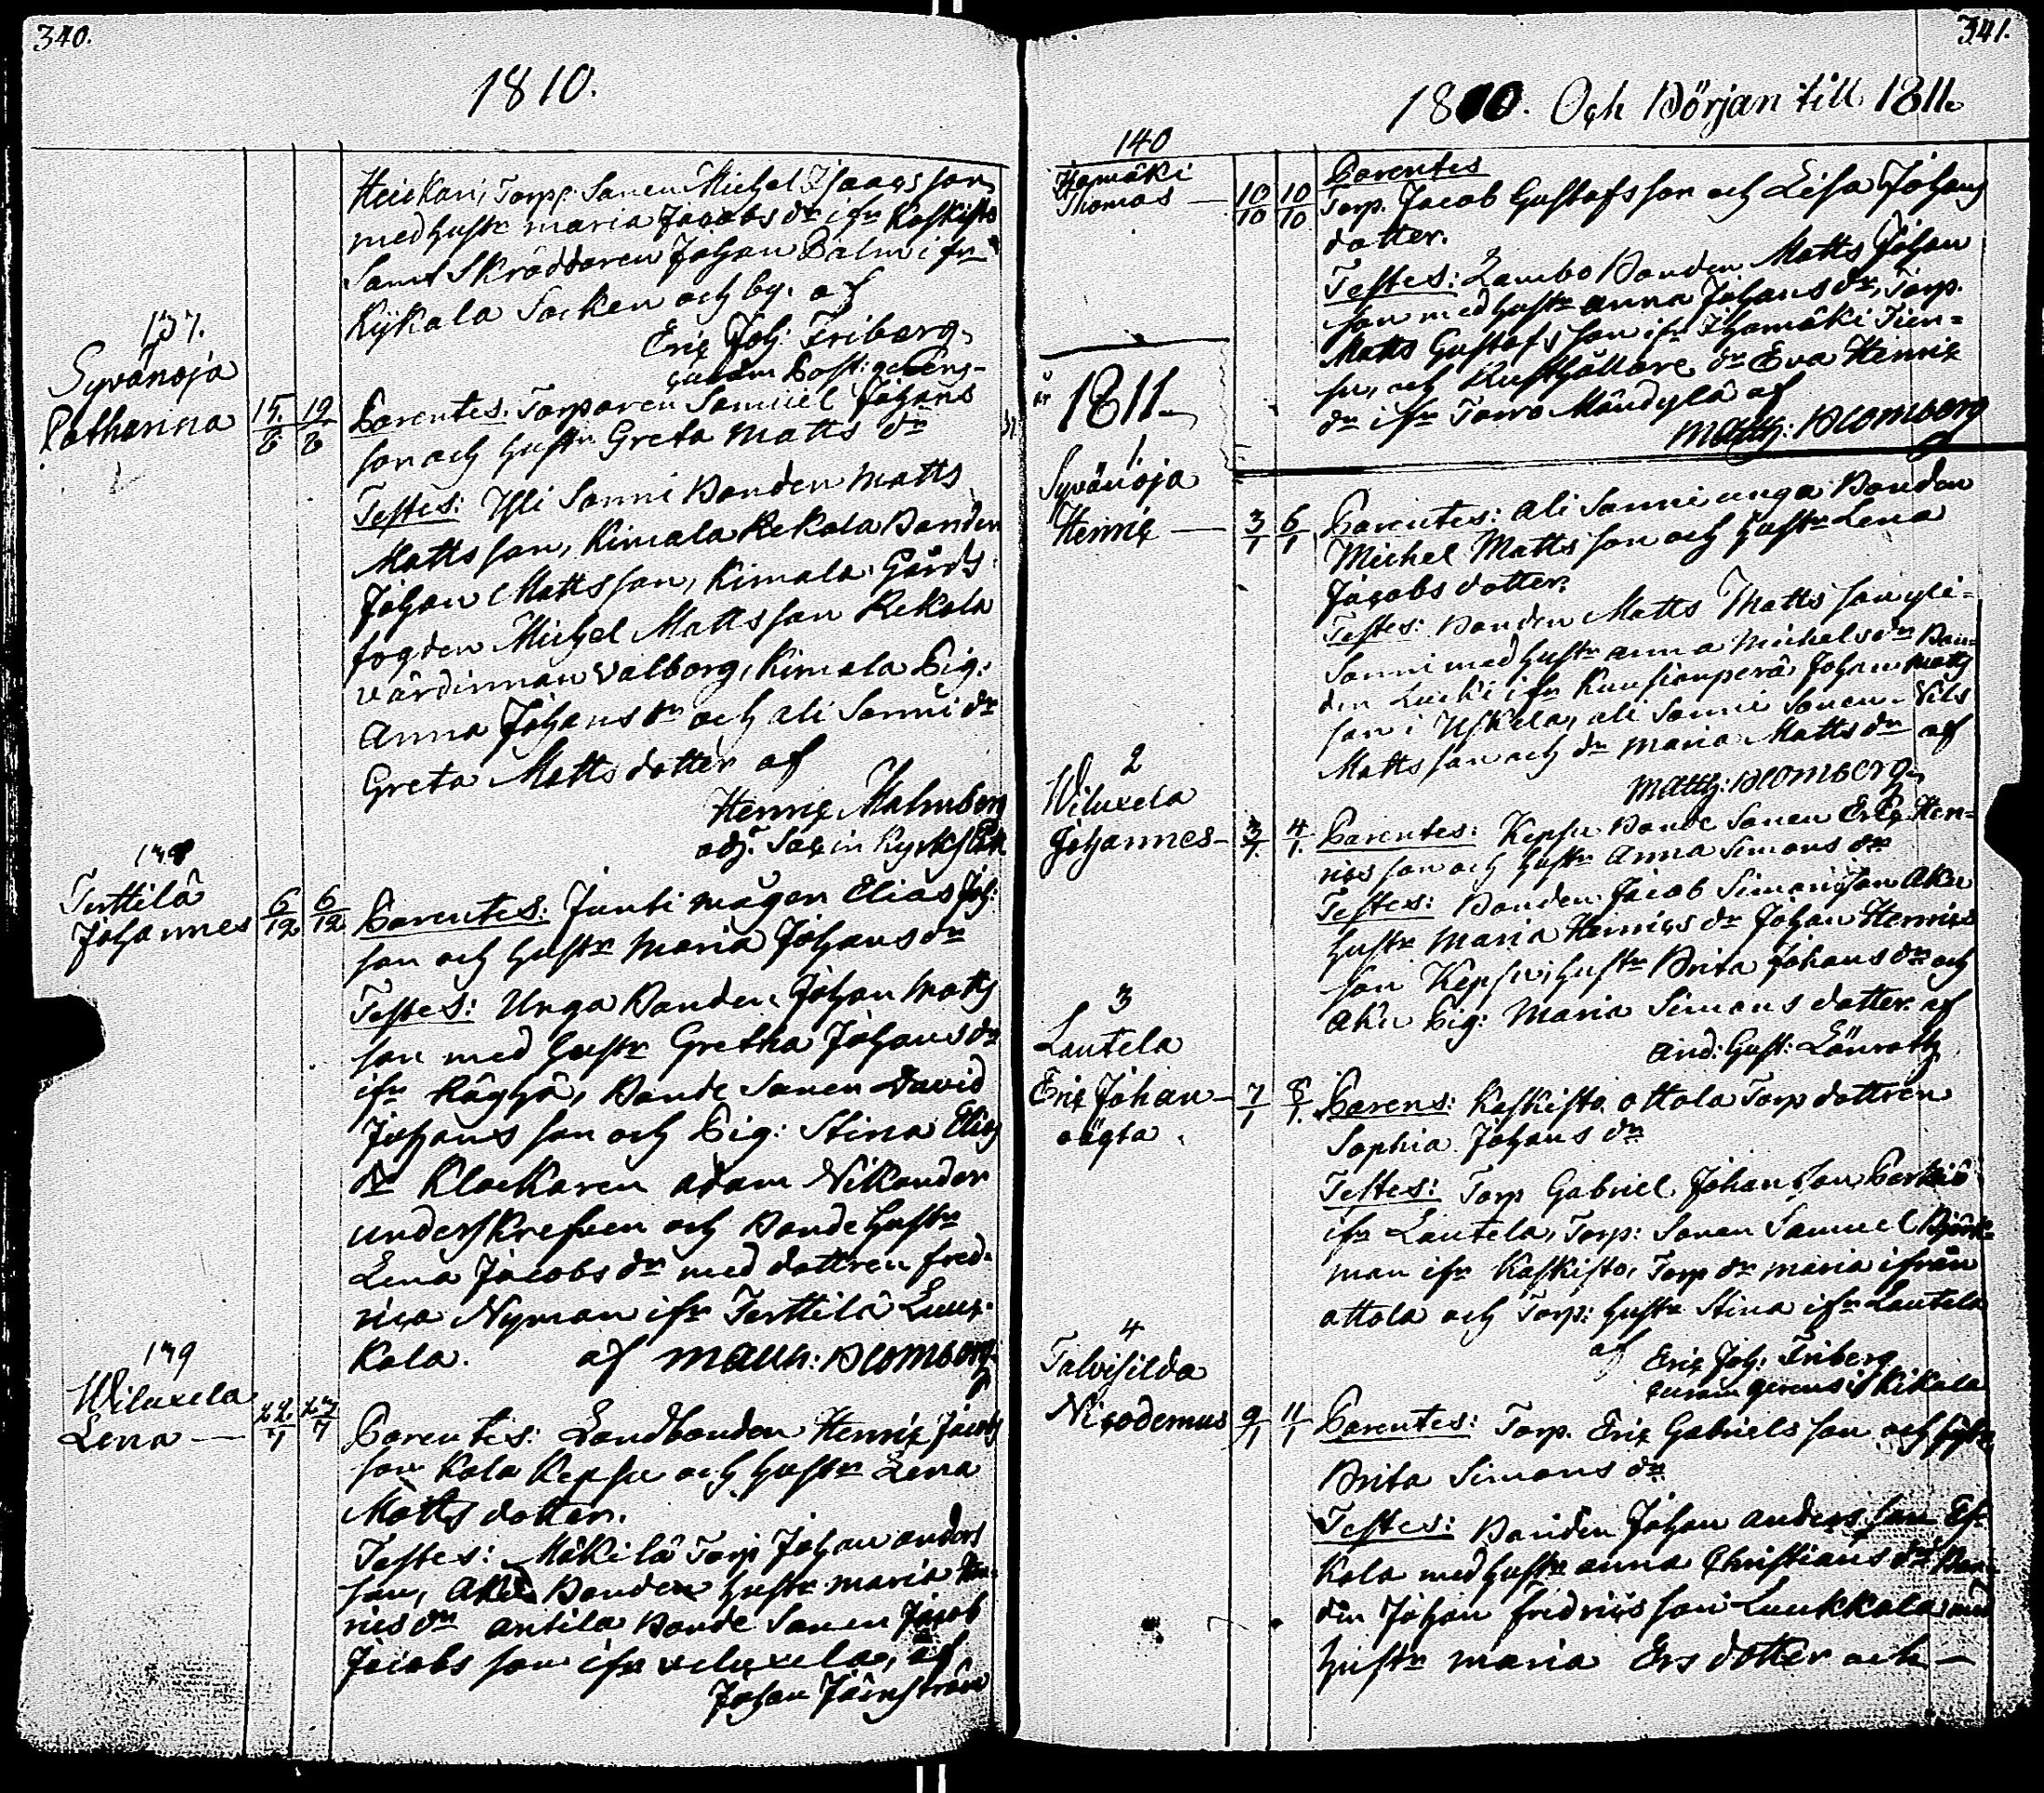 340.
1810.
Heickari, Torp: Sonen Michel Isaacs son
med hustr maria Jacobs dr ifr Koskisto
samt Skräddaren Johan Palm ifr
Kijkala Socken och by. af
Eric Joh: Friberg
curam Past: gerens
137.
Syvänoja
Catharina
15/8 19/8
Parentes. Torparen Samuel Johans
son och hustr Greta Matts dr
Testes: Yli Sonni Bonden Matts
Mattsson, Kimala Rekola Bonden
Johan Mattsson, Kimala Gårds
fogden Michel Mattsson Rekola
värdinnan Valborg, Kimala Pig:
Anna Johans dr och ali Sonni dr
Greta Matts dotter af
Henric Malmberg
adj: Sac in
138
Terttilä
Johannes
6/12 6/12
Parentes: Junti mågen Elias Joh:
son och hustr Maria Johans dr
Testes: Unga Bonden Johan Matts
son med hustr Gretha Johans dr
ifr Räyhä, Bonde Sonen David
Johans son och Pig: Stina Elias
dr Klockaren Adam Nikander
underskrefven och Bonde hustr
Lena Jacobs dr med dottren Fred-
rica Nyman ifr Terttilä Luuk-
kala. af Matth: Blomberg
139
Wiluxela
Lena —
22/1 27/7
Parentes: Landbonden Henric Jacobs
son Kola Kepsu och hustr Lena
Matts dotter.
Testes: Mäkilä Torp Johan Anders
son, Bonden hustr maria Hen-
rics dr Antila Bonde Sonen Jacob
Jacobs son ifr veluxela, af
Johan Järnström
341.
1810. Och Början till 1811.
140
Ihamäki
Thomas —
10/10 10/10
Parentes
Torp. Jacob Gustafsson och Lisa Johans
dotter.
Testes: Lambo Bonden Matts Johan
son med hustr Anna Johans dr, Torp.
Matts Gustafs son ifr Ihamäki Tien-
su, och Rusthållare dr Eva Henric
dr ifr Torro Mändylä af
Matth: Blomberg
år 1811.
1
Syvänoja
Henric —
3/1 6/1
Parentes: ali Sonni unga Bonden
Michel Matts son och hustr Lena
Jacobs dotter.
Testes: Bonden Matts Matts son yli-
Sonni med hustr Anna Michels dr Bon-
den Lucki ifr Kuusjonperä Johan Matts
son i Uskela, ali Sonni Sonen Nils
Matts son och dr maria Matts dr af
Matth: Blomberg
2
Wiluxela
Johannes —
3/1. 4/1.
Parentes: Kepsu Bonde Sonen Eric Hen-
rics son och hustr Anna Simons dr
Testes: Bonden Jacob Simonsson Aku
hustr Maria Henrics dr Johan Henrics
son Kepsu, hustr Brita Johans dr och
Aku Pig: Maria Simons dotter. af
And: Gust: Lönroth
3
Lautela
Eric Johan —
oägta.
7/1 8/1.
Parens: Koskisto Ottola Torp dottren
Sophia Johans dr
Testes: Torp Gabriel Johan son
ifr Lautela, Torp: Sonen Samuel Björk-
man ifr Koskisto, Torp dr Maria ifrån
Ottola och Torp: hustr Stina ifr Lautela
af Eric Joh: Friberg
curam gerens i Kikala
4
Talvisilda
Nicodemus
9/1 11/1
Parentes: Torp. Eric Gabriels son och hustr
Brita Simons dr
Testes: Bonden Johan Anders son Es-
kola med hustr Anna Christians dr Bon-
den Johan Fredrics son Luukkala med
hustr maria Ers dotter och —